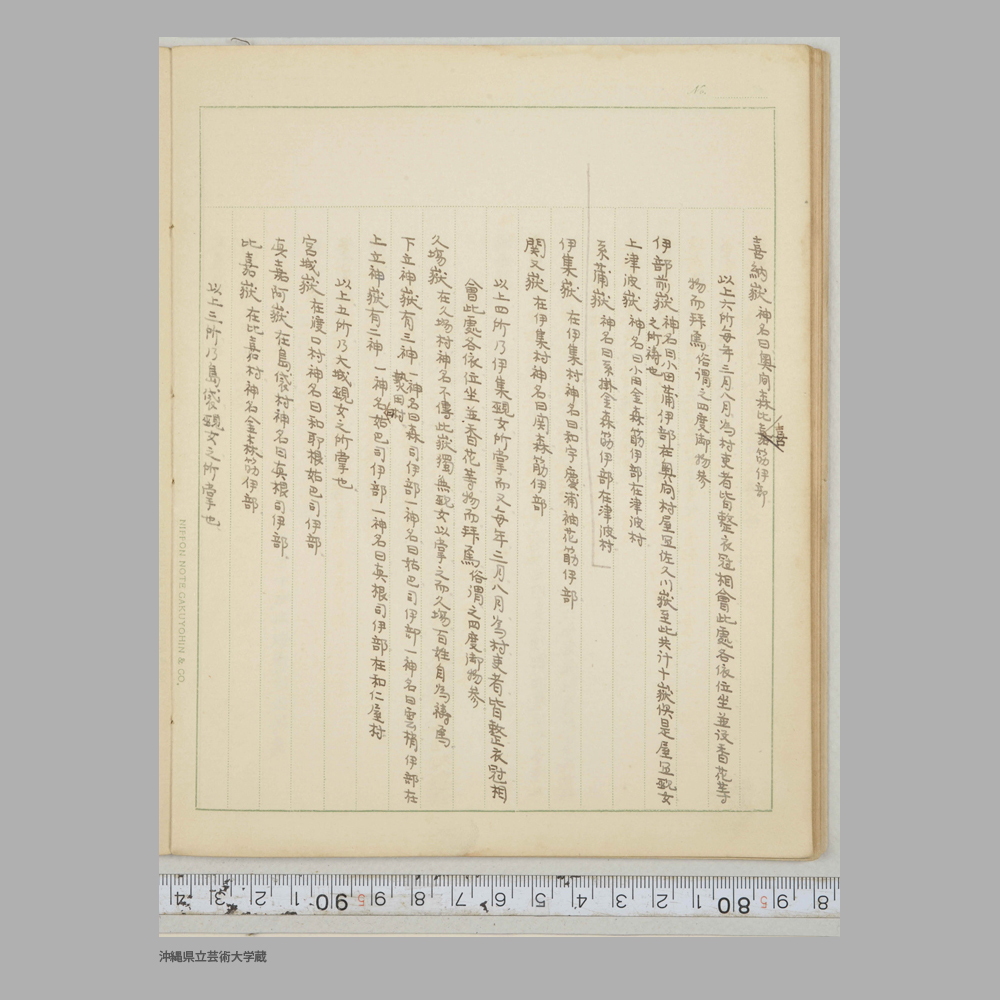 12
喜納嶽 神名曰奥間森比嘉筋伊部
喜
以上六所毎年三月八月為村吏者皆整衣冠相會此處各依位坐並设香花等
物而拜焉俗謂之四度御物参
伊部前嶽 神名曰小田蒲伊部在奥間村屋宜佐久川嶽至此共计十嶽倶是屋宜覡女
之所祷也
上津波嶽 神名曰小田金森筋伊部在津波村
系蒲嶽 神名曰系掛金森筋伊部在津波村
伊集嶽 在伊集村神名曰和宇慶浦袖花筋伊部
関又嶽 在伊集村神名曰関森筋伊部
以上四所乃伊集覡女所掌而又毎年三月八月為村吏者皆整衣冠相
會此處各依位坐並香花等物而拜焉俗謂之四度御物参
久場嶽 在久場村神名不傳此嶽獨無覡女以掌之而久場百姓自為祷焉
下立神嶽有三神 一神名曰森司伊部一神名曰姑巴司伊部一神名曰雲梢伊部在
熱田村
上立神嶽有二神 一神名姑巴司伊部一神名曰真根司伊部在和仁屋村
以上五所乃大城覡女之所掌也
宮城嶽 在渡口村神名曰和耶根姑巴司伊部
真嘉阿嶽 在島袋村神名曰真根司伊部
比嘉嶽 在比嘉村神名金森筋伊部
以上三所乃島袋覡女之所掌也
NIPPON NOTE GAKUYOHIN & CO.
4 3 2 1 90 9 8 7 6 5 4 3 2 1 80 9 8
沖縄県立芸術大学蔵